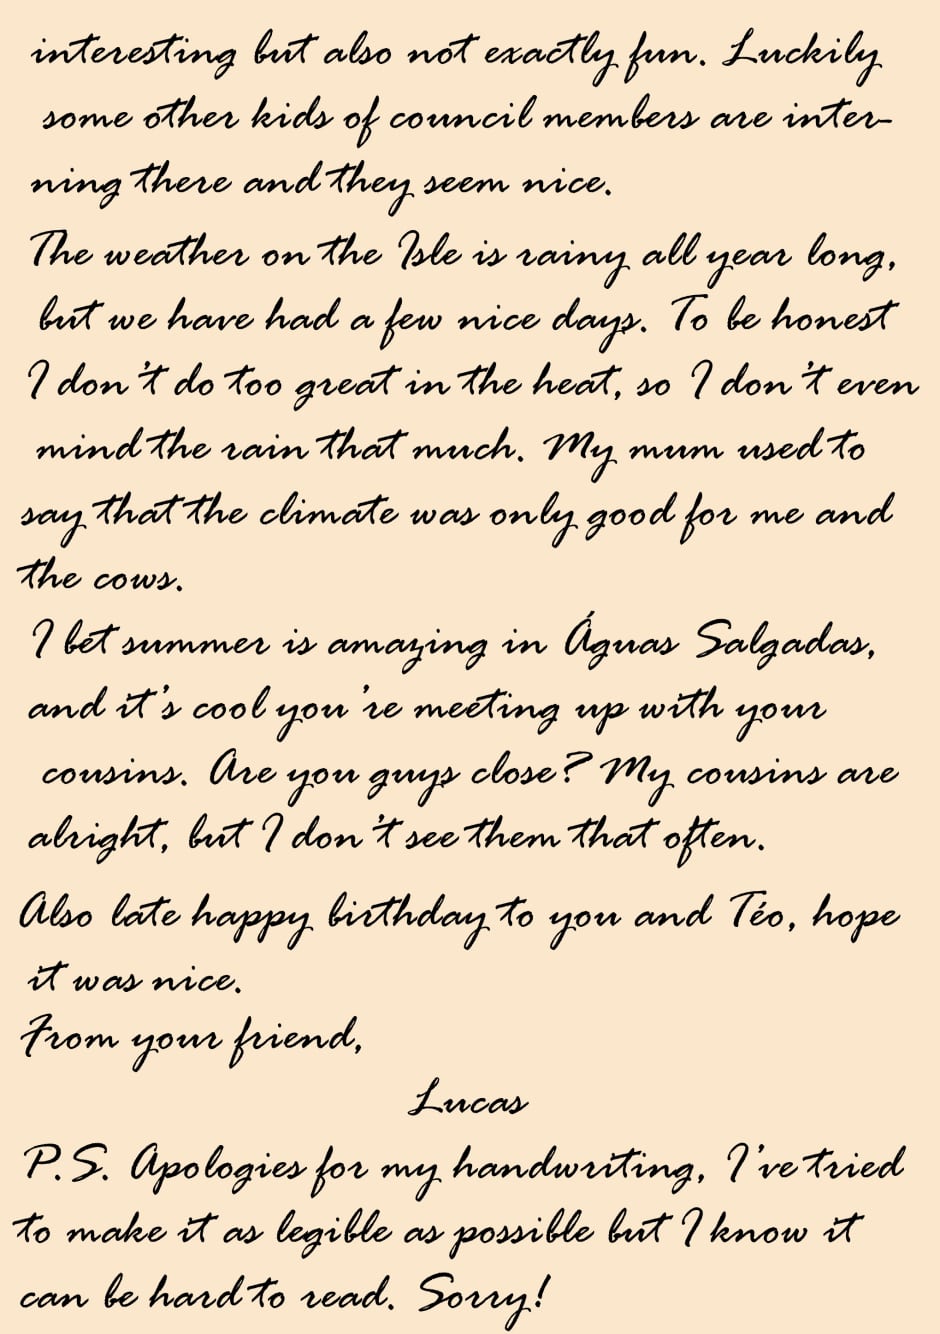 interesting but also not exactly fun. Luckily
some other kids of council members are inter-
ning there and they seem nice.
The weather on the Isle is rainy all year long,
but we have had a few nice days. To be honest
I don't do too great in the heat, so I don't even
mind the rain that much. My mum used to
say that the climate was only good for me and
the cows.
I bet summer is amazing in Águas Salgadas,
and it's cool you're meeting up with your
cousins. Are you guys close? My cousins are
alright, but I don't see them that often.
Also late happy birthday to you and Téo, hope
it was nice.
From your friend,
Lucas
P.S. Apologies for my handwriting, I've tried
to make it as legible as possible but I know it
can be hard to read. Sorry!